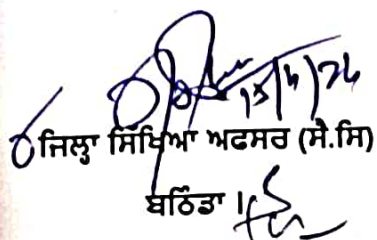 15/4/24
ਜਿਲ੍ਹਾ ਸਿੱਖਿਆ ਅਫਸਰ (ਸੈ.ਸਿ)
ਬਠਿੰਡਾ ।